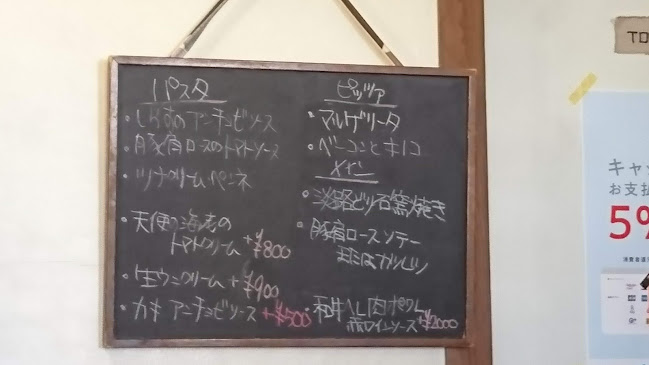 パスタ
・しらすのアンチョビソース
・豚肩ロースのトマトソース
・ツナクリームペンネ
・天使の海老の
トマトクリーム +¥800
・生ウニクリーム +¥900
・カキ アンチョビソース +¥500
ピッツァ
・マルゲリータ
・ベーコンとキノコ
メイン
・淡路どり石窯焼き
・豚肩ロースソテー
または
・和牛
赤ワインソース +¥2000
TO
キャッ
お支払
5%
消費者還元